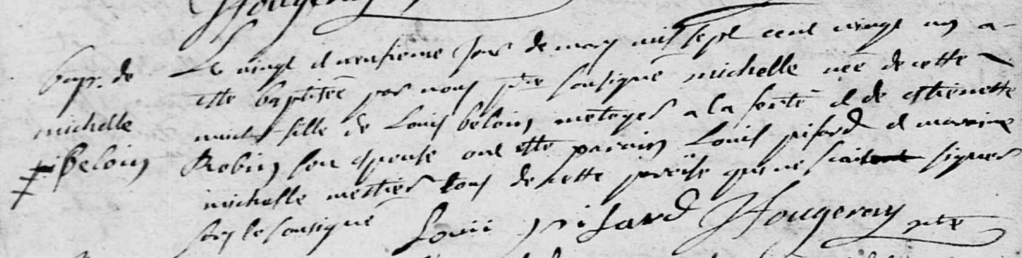 Fougeray
bapt. de
michelle
beloin
Le vingt et neufieme jour de may mil sept cent vingt un a
este baptisée par nous ptre soussigné michelle née de cette
nuit fille de Louis beloin metoyer a la ferté et de Ethienette
Robin son epouse ont esté parain Louis pisard et maraine
michelle mestier tous de cette paroisse qui ne scait signer
soussigné
Louii pisard Fougeray ptre